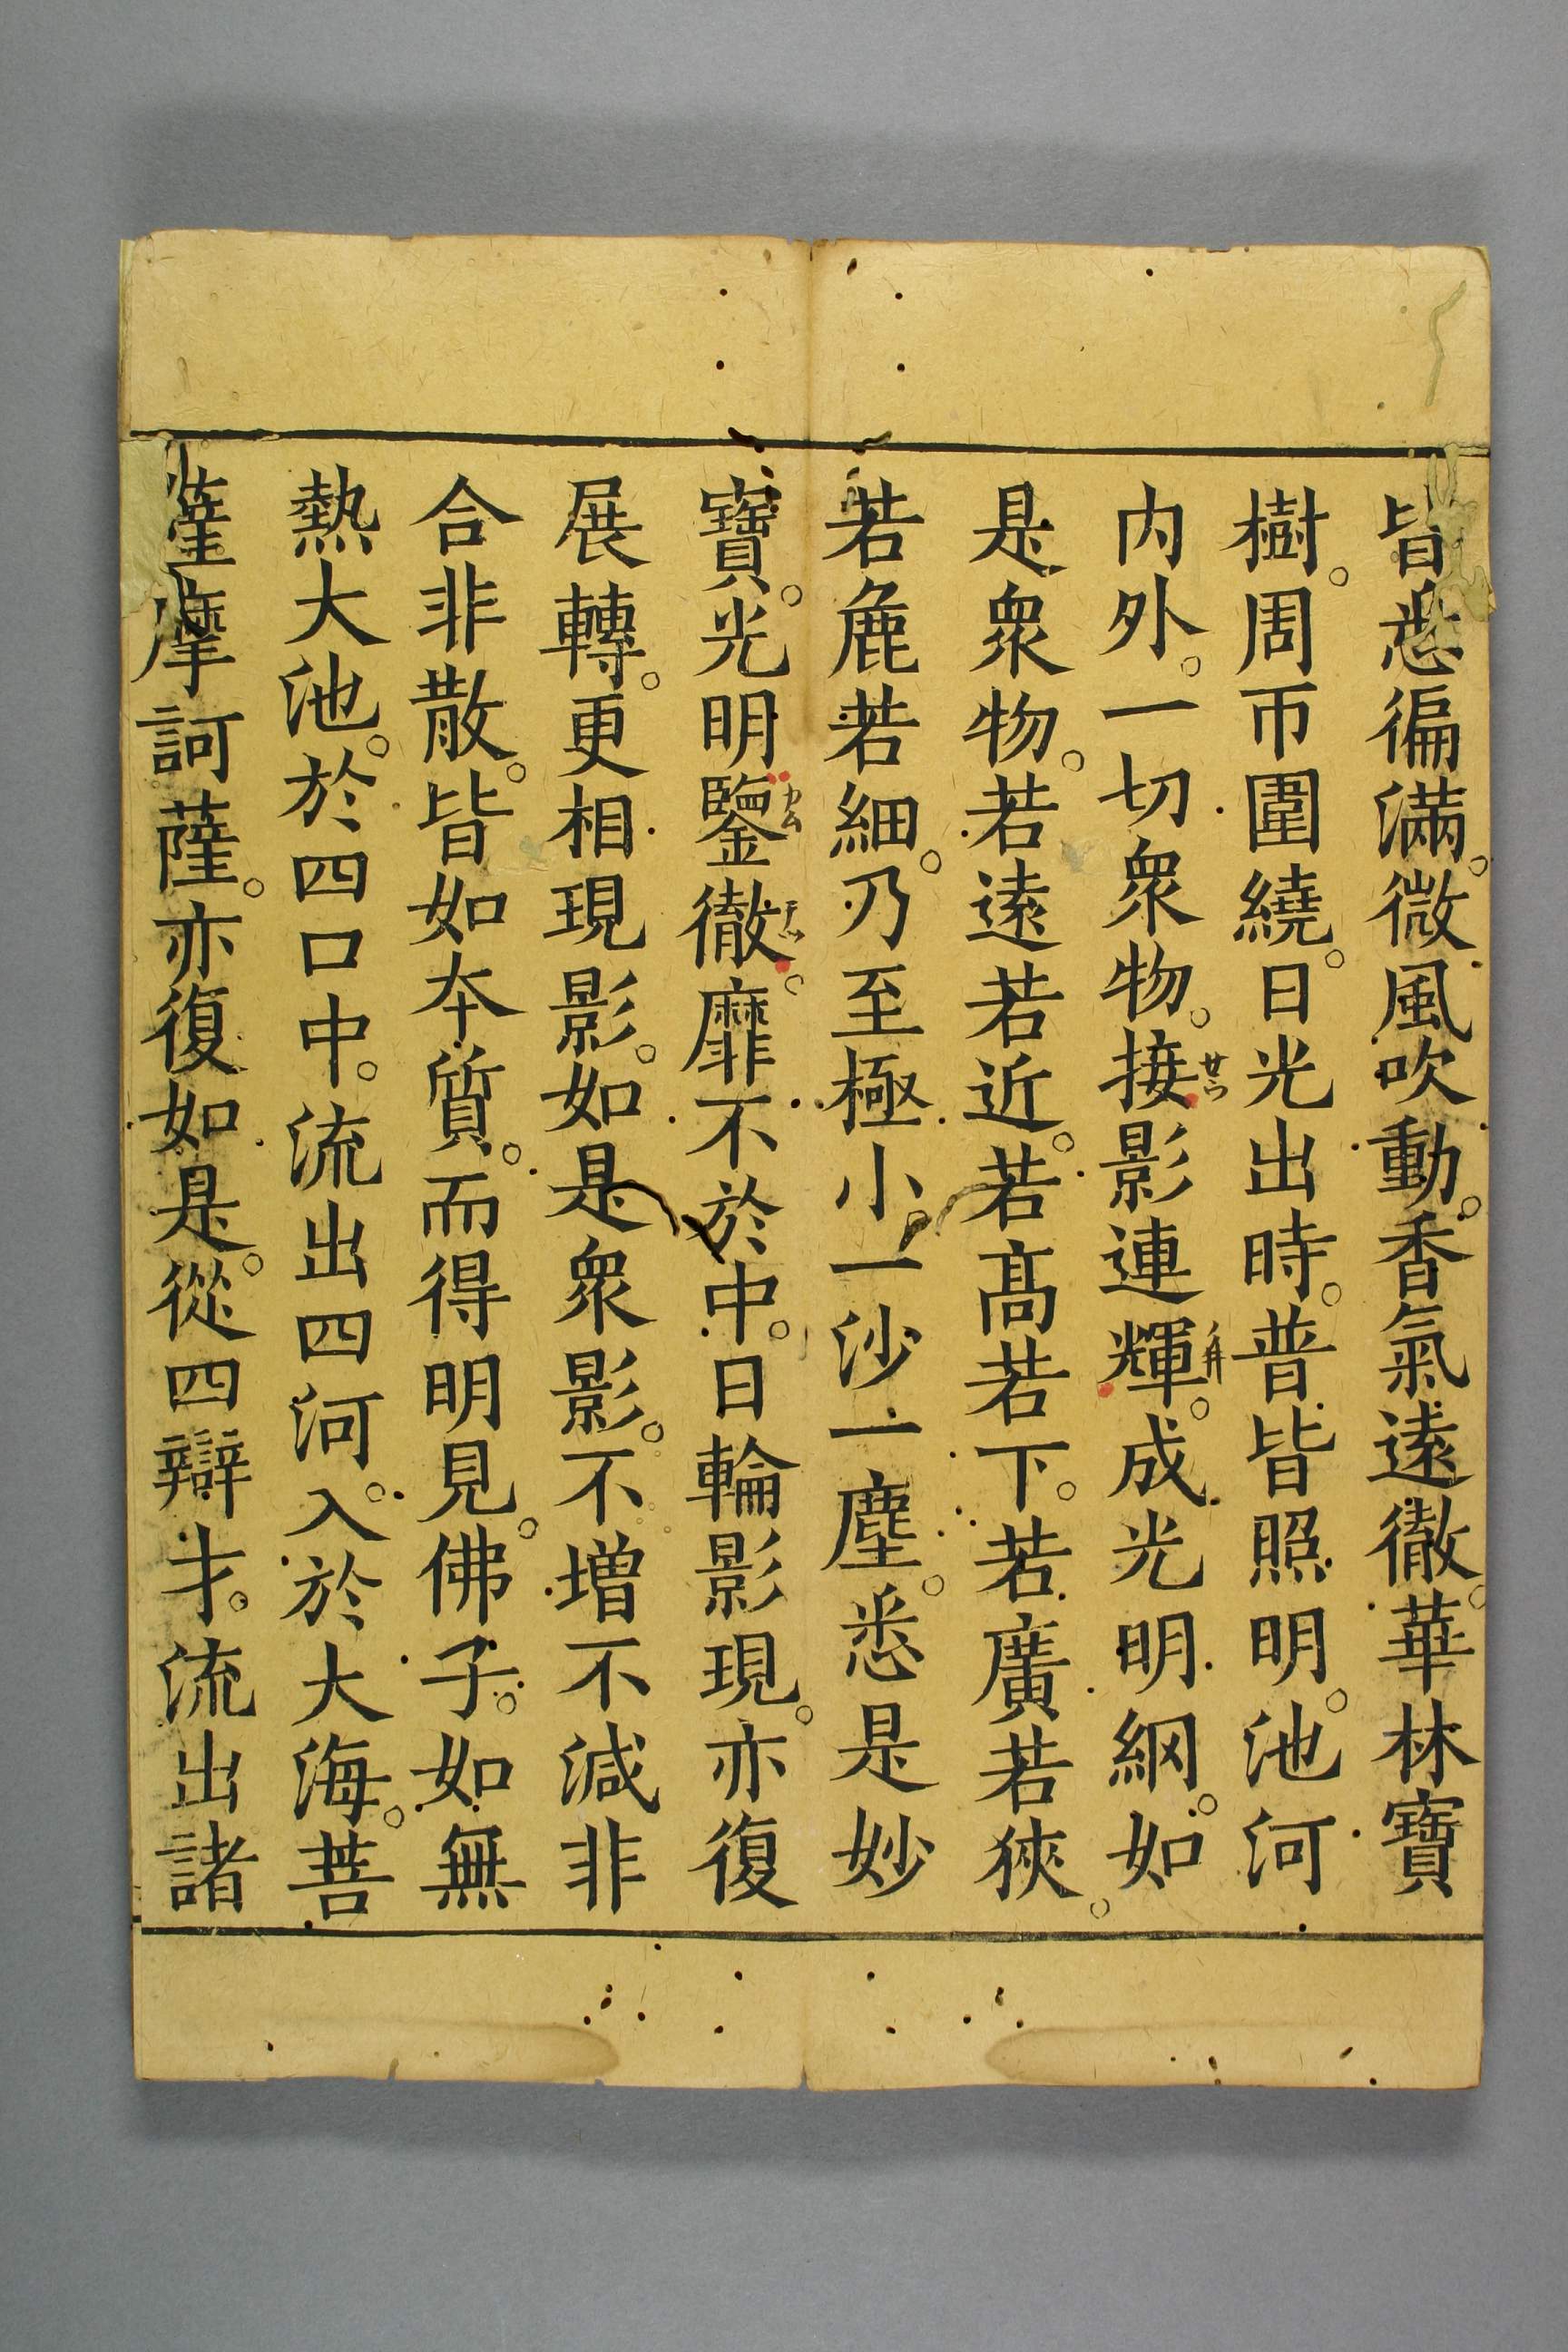 皆悉徧滿。微風吹動。香氣遠徹。華林寶
樹。周帀圍繞。日光出時。普皆照明。池河
内外。一切衆物。接影連輝。成光明網。如
是衆物。若遠若近。若髙若下。若廣若狹。
若麁若細。乃至極小。一沙一塵。悉是妙
寶。光明鑒徹。靡不於中。日輪影現。亦復
展轉。更相現影。如是衆影。不增不減非
合非散。皆如本質。而得明見。佛子。如無
熱大池。於四口中。流出四河。入於大海。菩
薩摩訶薩。亦復如是。從四辯才。流出諸